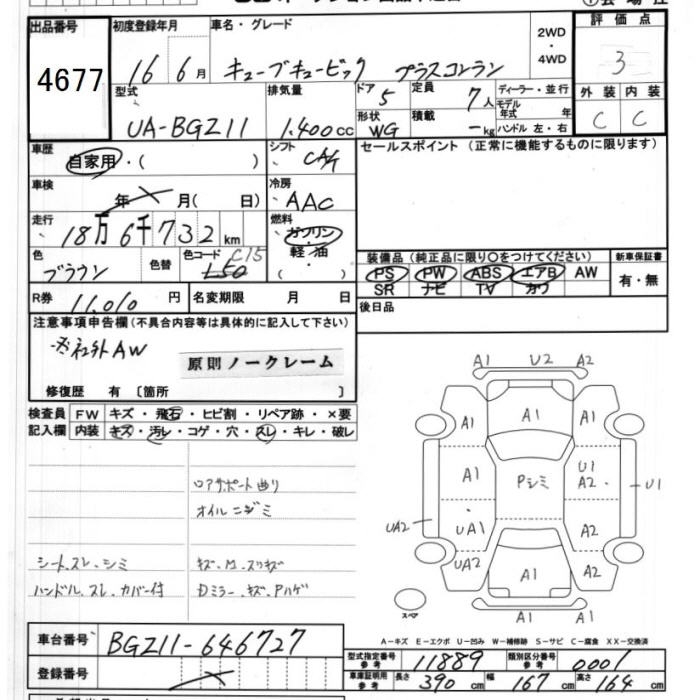 会場控
出品番号 初度登録年月 車名・グレード 2WD・4WD 評価点
4677 16 6月 キューブキュービック プラスコンラン 3
型式 排気量 ドア 5 定員 7人 ディーラー・並行 外装 内装
UA-BGZ11 1.400cc 形状 WG 積載 －kg モデル年式 年 C C
ハンドル 左・右
車歴 自家用・( ) シフト CA/4 セールスポイント (正常に機能するものに限ります)
車検 年 月( 日) 冷房 AAC
走行 18万6千732km 燃料 ガソリン・軽油・( )
色 ブラウン 色替 色コード C15 L50
装備品 (純正品に限り○をつけてください) 新車保証書
PS PW ABS エアB AW 有・無
SR ナビ TV カワ
R券 11,010円 名変期限 月 日 後日品
注意事項申告欄(不具合内容等は具体的に記入して下さい)
※社外AW
原則ノークレーム
修復歴 有 〔箇所 〕
検査員 FW キズ・飛石・ヒビ割・リペア跡・×要
記入欄 内装 キズ・汚レ・コゲ・穴・スレ・キレ・破レ
A1 U2 A2
A1 A1 A1
A1 Pシミ U1 A2 U1
UA2 UA1 A2
UA2 A1 A2
A1 A1
スペア
ロアサポート曲り
オイルニジミ
シートスレ・シミ キズ・M・スリキズ
ハンドル スレ・カバー付 Dミラー・キズ・Pハゲ
A－キズ E－エクボ U－凹み W－補修跡 S－サビ C－腐食 XX－交換済
車台番号 BGZ11-646727
型式指定番号 参考 11889 類別区分番号 参考 0001
登録番号
車庫証明用 参考 長さ 390cm 幅 167cm 高さ 164cm